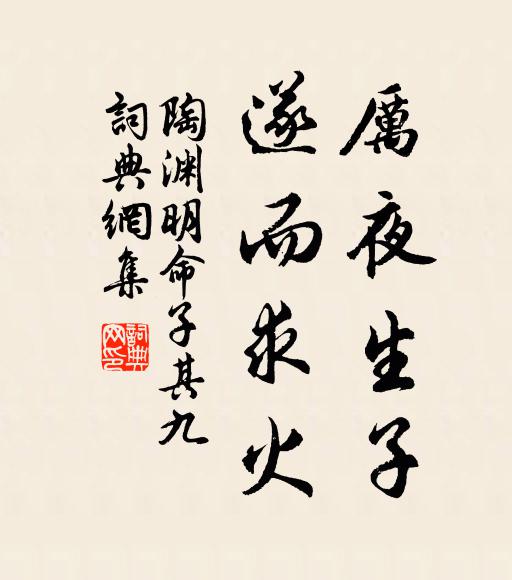 厲夜生子
遂而求火
陶渊明命子其九
詞典網集
詞典网印